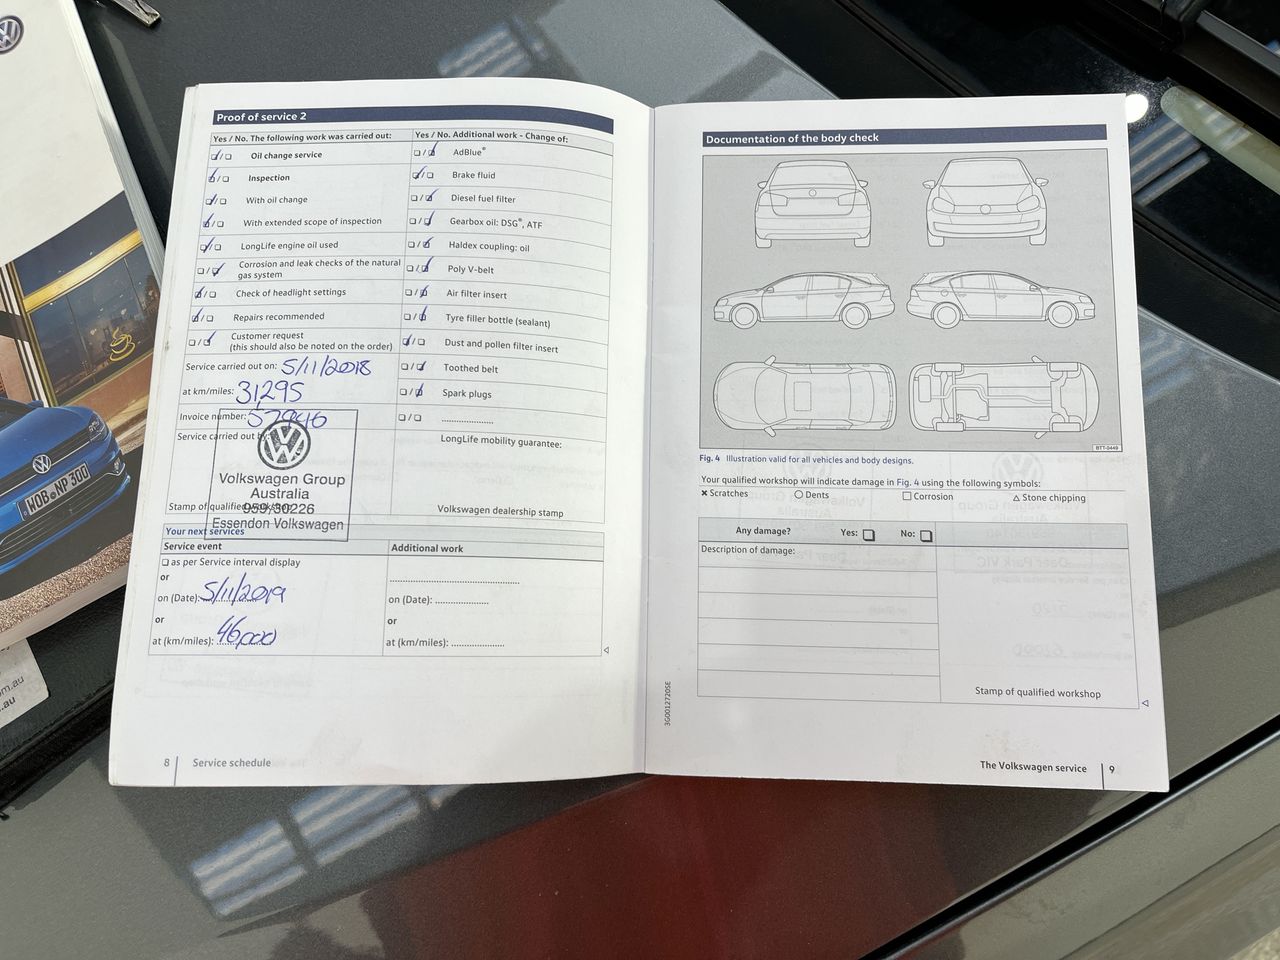 Proof of service 2
Yes / No. The following work was carried out:
Oil change service
Inspection
With oil change
With extended scope of inspection
LongLife engine oil used
Corrosion and leak checks of the natural
gas system
Check of headlight settings
Repairs recommended
Customer request
(this should also be noted on the order)
Service carried out on: 5/11/2018
at km/miles: 31295
Invoice number: 57946
Service carried out by
Volkswagen Group
Australia
959/30226
Essendon Volkswagen
Stamp of qualified
Yes / No. Additional work - Change of:
AdBlue®
Brake fluid
Diesel fuel filter
Gearbox oil: DSG®, ATF
Haldex coupling: oil
Poly V-belt
Air filter insert
Tyre filler bottle (sealant)
Dust and pollen filter insert
Toothed belt
Spark plugs
LongLife mobility guarantee:
Volkswagen dealership stamp
Your next services
Service event
as per Service interval display
or
on (Date): 5/11/2019
or
at (km/miles): 46,000
Additional work
on (Date):
or
at (km/miles):
8 Service schedule
Documentation of the body check
BTT-0449
Fig. 4 Illustration valid for all vehicles and body designs.
Your qualified workshop will indicate damage in Fig. 4 using the following symbols:
Scratches Dents Corrosion Stone chipping
Any damage? Yes: No:
Description of damage:
Stamp of qualified workshop
3G0012720SE
The Volkswagen service 9
WOB NP 300
om.au
.au